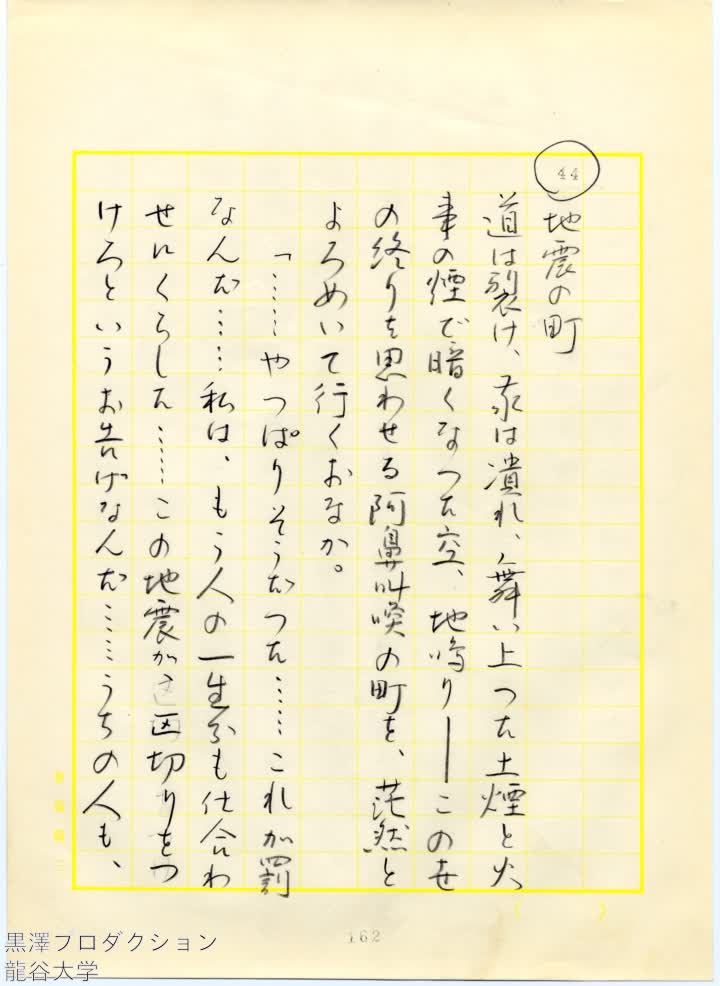 44
地震の町
道は裂け、家は潰れ、舞い上つた土煙と火
事の煙で暗くなつた空、地鳴り――この世
の終りを思わせる阿鼻叫喚の町を、茫然と
よろめいて行くおなか。
「……やつぱりそうだつた……これが罰
なんだ……私は、もう人の一生分も仕合わ
せにくらした……この地震が区切りをつ
けろというお告げなんだ……うちの人も、
162
黒澤プロダクション
龍谷大学